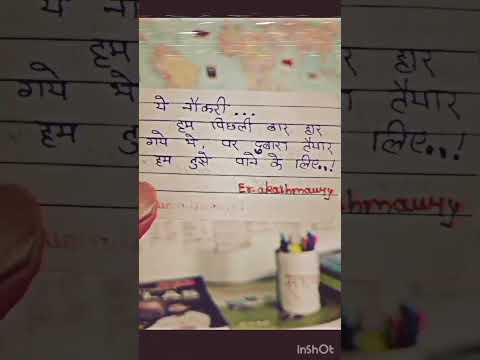 ये नौकरी...
हम पिछली बार हार
गये थे, पर दुबारा तैयार
हम इसे पाने के लिए..!
Er. akashmaury
InShOt